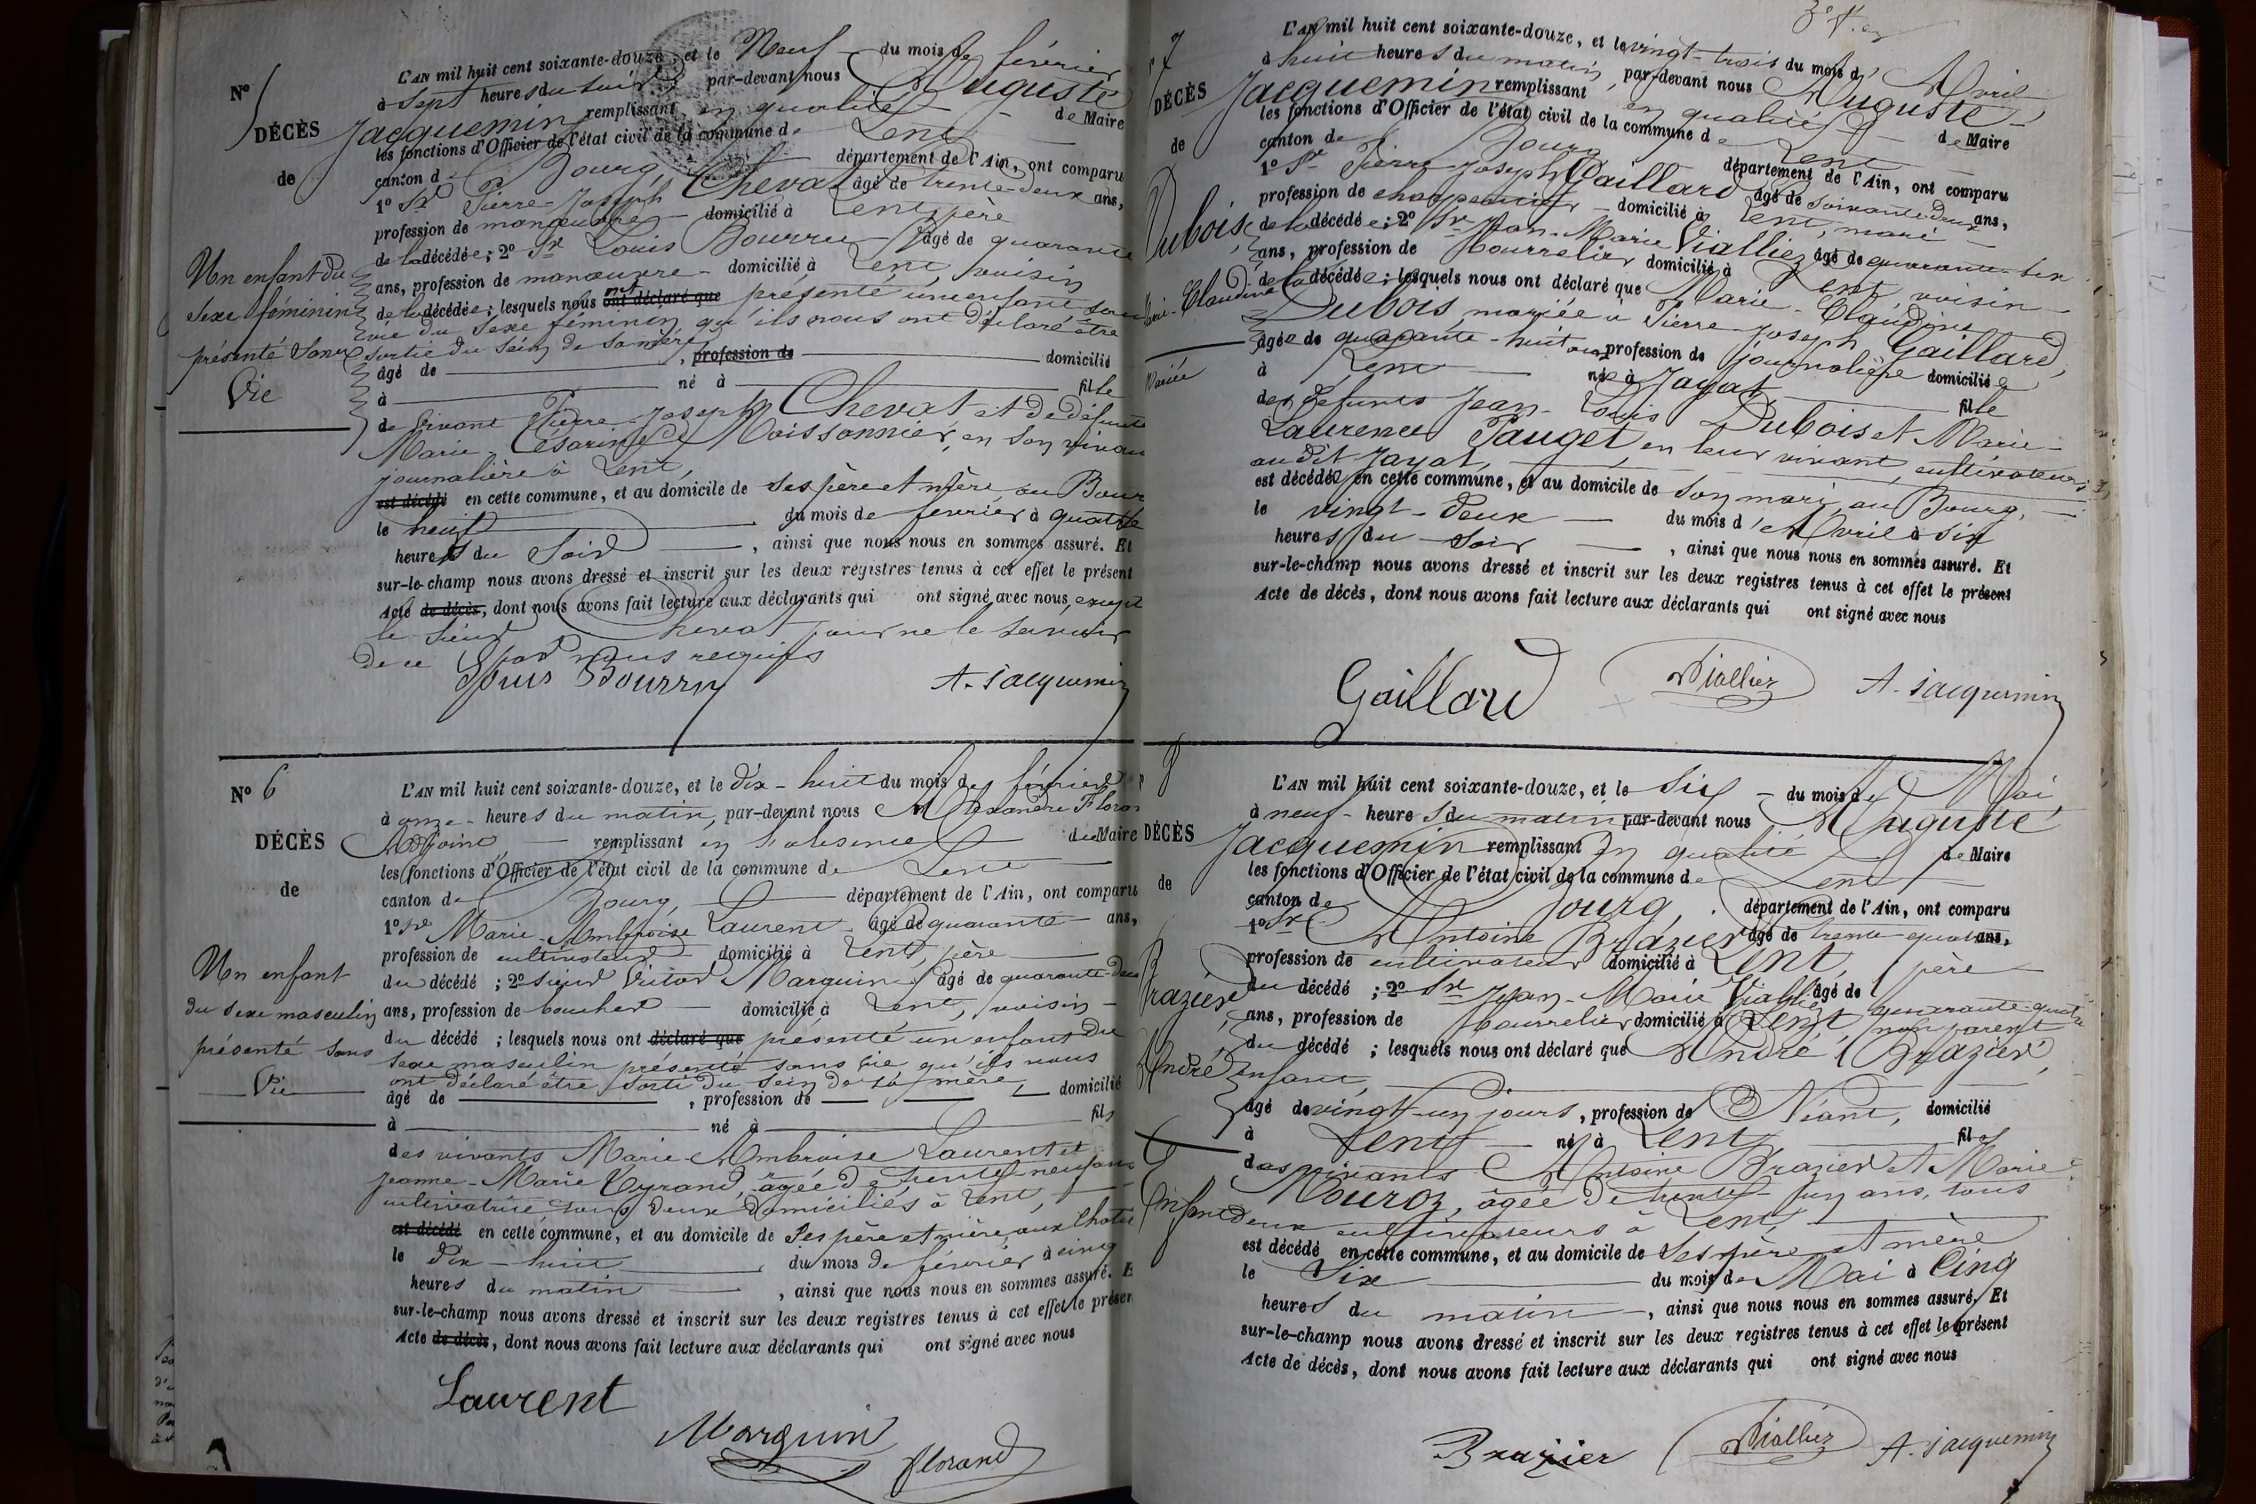 N° 5
DÉCÈS
de
Un enfant du
sexe féminin
présenté sans
Vie
L'AN mil huit cent soixante-douze, et le Neuf du mois de février
à sept heures du soir par-devant nous Auguste
Jacquemin remplissant en qualité de Maire
les fonctions d'Officier de l'état civil de la commune de Lent
canton de Bourg, département de l'Ain, ont comparu
1° Sr Pierre-Joseph Chevat âgé de trente-deux ans,
profession de manœuvre domicilié à Lent, père
de la décédée; 2° Sr Louis Bourru âgé de quarante
ans, profession de manœuvre domicilié à Lent, voisin
de la décédée; lesquels nous ont déclaré que présenté un enfant sans
vie du sexe féminin qu'ils nous ont déclaré être
sortie du sein de sa mère
âgé de , profession de domicilié
à né à fille
de vivant Pierre-Joseph Chevat et de défunte
Marie-Césarine Moissonnier, en son vivant
journalière à Lent,
est décédé en cette commune, et au domicile de ses père et mère, au Bourg
le neuf du mois de février à quatre
heures du soir , ainsi que nous nous en sommes assuré. Et
sur-le-champ nous avons dressé et inscrit sur les deux registres tenus à cet effet le présent
Acte de décès, dont nous avons fait lecture aux déclarants qui ont signé avec nous, excepté
le sieur Chevat pour ne le savoir
de ce par nous requis
Louis Bourru A. Jacquemin
N° 6
DÉCÈS
de
Un enfant
du sexe masculin
présenté sans
Vie
L'AN mil huit cent soixante-douze, et le dix-huit du mois de février
à onze heures du matin, par-devant nous Alexandre Floran
Adjoint remplissant en l'absence du Maire
les fonctions d'Officier de l'état civil de la commune de Lent
canton de Bourg, département de l'Ain, ont comparu
1° Sr Marie-Ambroise Laurent âgé de quarante ans,
profession de cultivateur domicilié à Lent, père
du décédé ; 2° sieur Victor Marguin âgé de quarante-deux
ans, profession de boucher domicilié à Lent, voisin
du décédé ; lesquels nous ont déclaré que présenté un enfant du
sexe masculin présenté sans vie qu'ils nous
ont déclaré être sorti du sein de sa mère
âgé de , profession de domicilié
à né à fils
des vivants Marie-Ambroise Laurent et
Jeanne-Marie Tyrand, âgée de trente-neuf ans
cultivatrice tous deux domiciliés à Lent,
est décédé en cette commune, et au domicile de ses père et mère, aux
le dix-huit du mois de février à cinq
heures du matin , ainsi que nous nous en sommes assuré. E
sur-le-champ nous avons dressé et inscrit sur les deux registres tenus à cet effet le présen
Acte de décès, dont nous avons fait lecture aux déclarants qui ont signé avec nous
Laurent
Marguin
Florand
7
DÉCÈS
de
Dubois,
Marie-Claudine
Mariée
L'AN mil huit cent soixante-douze, et le vingt-trois du mois d'Avril
à huit heures du matin, par-devant nous Auguste
Jacquemin remplissant en qualité de Maire
les fonctions d'Officier de l'état civil de la commune de Lent
canton de Bourg département de l'Ain, ont comparu
1° Sr Pierre-Joseph Gaillard âgé de soixante-deux ans,
profession de charpentier domicilié à Lent, mari
de la décédée; 2° Sr Jean-Marie Viallier âgé de quarante-six
ans, profession de bourrelier domicilié à Lent, voisin
de la décédée; lesquels nous ont déclaré que Marie-Claudine
Dubois mariée à Pierre-Joseph Gaillard,
âgée de quarante-huit ans profession de journalière domiciliée
à Lent née à Jayat, fille
des défunts Jean-Louis Dubois et Marie-
Laurence Pauget, en leur vivant, cultivateurs
au dit Jayat,
est décédée en cette commune, et au domicile de son mari, au Bourg,
le vingt-deux du mois d'Avril à six
heures du soir , ainsi que nous nous en sommes assuré. Et
sur-le-champ nous avons dressé et inscrit sur les deux registres tenus à cet effet le présent
Acte de décès, dont nous avons fait lecture aux déclarants qui ont signé avec nous
Gaillard Viallier A. Jacquemin
8
DÉCÈS
de
Brazier
André
Enfant
L'AN mil huit cent soixante-douze, et le six du mois de Mai,
à neuf heures du matin par-devant nous Auguste
Jacquemin remplissant en qualité de Maire
les fonctions d'Officier de l'état civil de la commune de Lent
canton de Bourg, département de l'Ain, ont comparu
1° Sr Antoine Brazier âgé de trente-quatre ans,
profession de cultivateur domicilié à Lent, père
du décédé ; 2° Sr Jean-Marie Viallier âgé de quarante-quatre
ans, profession de bourrelier domicilié à Lent, non parent
du décédé ; lesquels nous ont déclaré que André Brazier,
enfant,
âgé de vingt-un jours, profession de Néant, domicilié
à Lent né à Lent fils
des vivants Antoine Brazier et Marie
Mouroz, âgée de trente-un ans, tous
deux cultivateurs à Lent,
est décédé en cette commune, et au domicile de ses père et mère
le Six du mois de Mai à Cinq
heures du matin , ainsi que nous nous en sommes assuré. Et
sur-le-champ nous avons dressé et inscrit sur les deux registres tenus à cet effet le présent
Acte de décès, dont nous avons fait lecture aux déclarants qui ont signé avec nous
Brazier Viallier A. Jacquemin